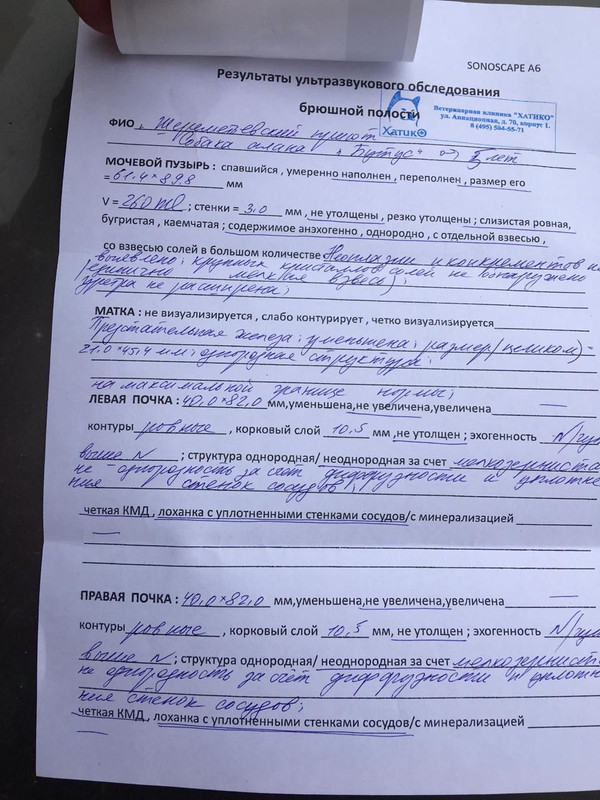 SONOSCAPE A6
Результаты ультразвукового обследования
брюшной полости
Ветеринарная клиника "ХАТИКО"
ул. Авиационная, д. 70, корпус 1.
8 (495) 504-55-71
ХАТИКО
ФИО Шереметевский приют
Собака "Бутус" 5 лет
МОЧЕВОЙ ПУЗЫРЬ : спавшийся , умеренно наполнен , переполнен , размер его
= 61.4 × 89.8 мм
V = 260 ml ; стенки = 3,0 мм , не утолщены , резко утолщены ; слизистая ровная,
бугристая , каемчатая ; содержимое анэхогенно , однородно , с отдельной взвесью ,
со взвесью солей в большом количестве Неоплазии и конкрементов не
выявлено; крупных кристаллов солей не обнаружено
(единично мелкая взвесь);
уретра не расширена;
МАТКА : не визуализируется , слабо контурирует , четко визуализируется
Предстательная железа: уменьшена; размер (целиком) =
21,0 × 45,4 мм; однородная структура;
на максимальной границе нормы;
ЛЕВАЯ ПОЧКА : 40,0 × 82,0 мм,уменьшена,не увеличена,увеличена
контуры ровные , корковый слой 10,5 мм ,не утолщен ; эхогенность N/чуть
выше N ; структура однородная/ неоднородная за счет мелкозернистая
неоднородность за счёт диффузности и уплотне-
ния стенок сосудов;
четкая КМД , лоханка с уплотненными стенками сосудов/с минерализацией
ПРАВАЯ ПОЧКА : 40,0 × 82,0 мм,уменьшена,не увеличена,увеличена
контуры ровные , корковый слой 10,5 мм, не утолщен ; эхогенность N/чуть
выше N ; структура однородная/ неоднородная за счет мелкозернист
неоднородность за счёт диффузности и уплотне-
ния стенок сосудов;
четкая КМД , лоханка с уплотненными стенками сосудов/с минерализацией